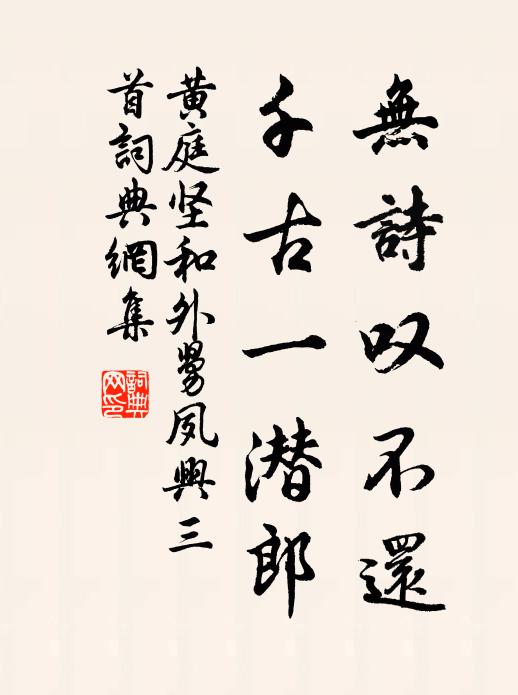 無詩叹不還
千古一潜郎
黄庭坚和外舅夙興三
首詞典網集
詞典
网印